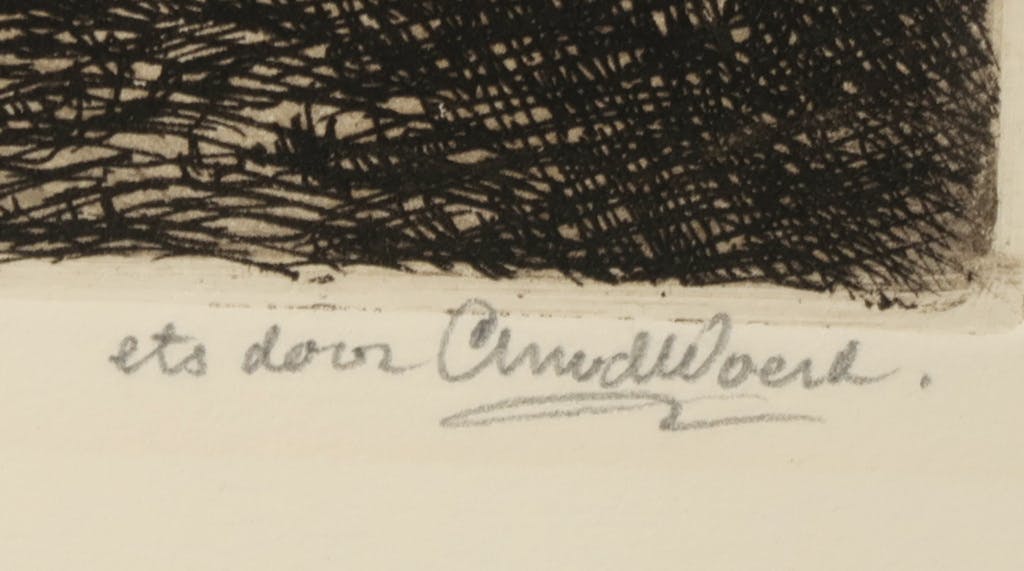 ets door ChrvdWoerd.